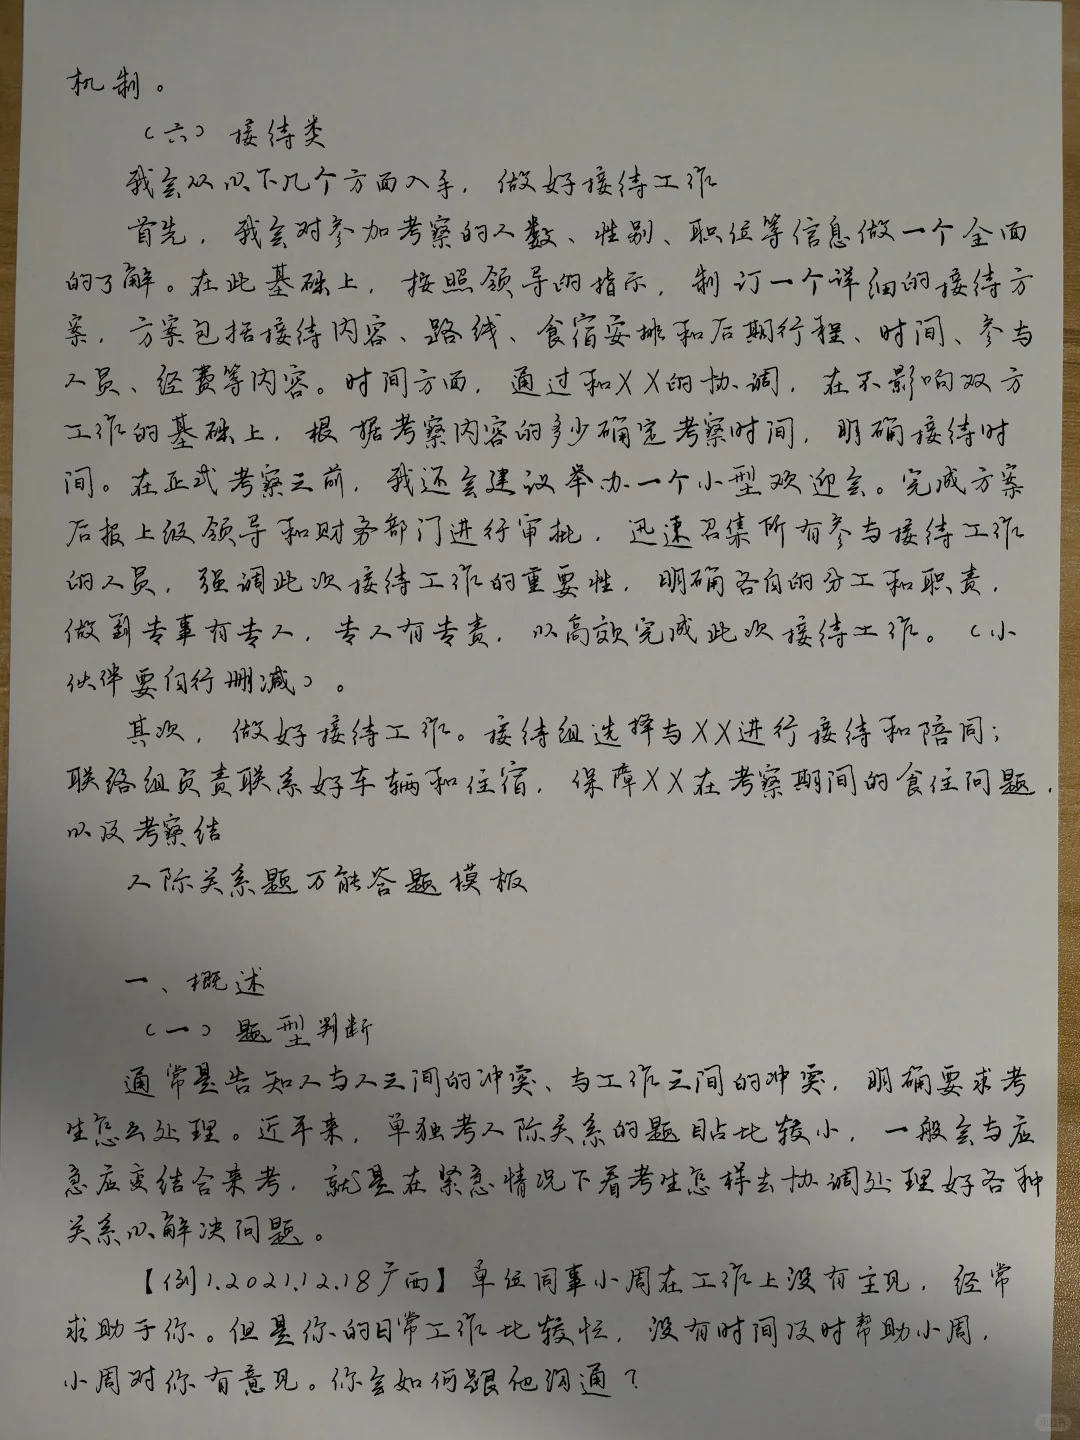 机制。
（六）接待类
我会从以下几个方面入手，做好接待工作
首先，我会对参加考察的人数、性别、职位等信息做一个全面
的了解。在此基础上，按照领导的指示，制订一个详细的接待方
案，方案包括接待内容、路线、食宿安排和后期行程、时间、参与
人员、经费等内容。时间方面，通过和XX的协调，在不影响双方
工作的基础上，根据考察内容的多少确定考察时间，明确接待时
间。在正式考察之前，我还会建议举办一个小型欢迎会。完成方案
后报上级领导和财务部门进行审批，迅速召集所有参与接待工作
的人员，强调此次接待工作的重要性，明确各自的分工和职责，
做到专事有专人，专人有专责，以高效完成此次接待工作。（小
伙伴要自行删减）。
其次，做好接待工作。接待组选择与XX进行接待和陪同；
联络组负责联系好车辆和住宿，保障XX在考察期间的食住问题，
以及考察结
人际关系题万能答题模板
一、概述
（一）题型判断
通常是告知人与人之间的冲突、与工作之间的冲突，明确要求考
生怎么处理。近年来，单独考人际关系的题目占比较小，一般会与应
急应变结合来考，就是在紧急情况下看考生怎样去协调处理好各种
关系以解决问题。
【例1.2021.12.18广西】单位同事小周在工作上没有主见，经常
求助于你。但是你的日常工作比较忙，没有时间及时帮助小周，
小周对你有意见。你会如何跟他沟通？
小红书